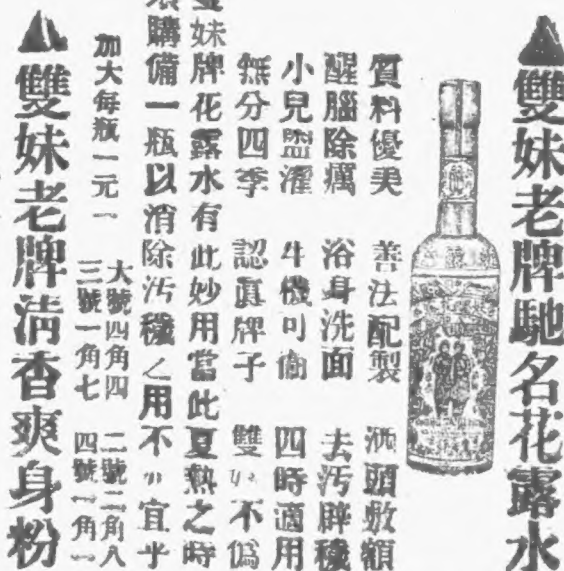 ▲雙妹老牌馳名花露水
質料優美 善法配製 洒頭敷額
醒腦除癘 浴身洗面 去污辟穢
小兒盥濯 機可 四時適用
無分四季 認眞牌子 雙 不偽
妹牌花露水有此妙用當此夏熱之時
購備一瓶以消除汚穢之用不 宜乎
加大每瓶一元一 大號四角四 二號二角八
三號一角七 四號一角一
▲雙妹老牌清香爽身粉